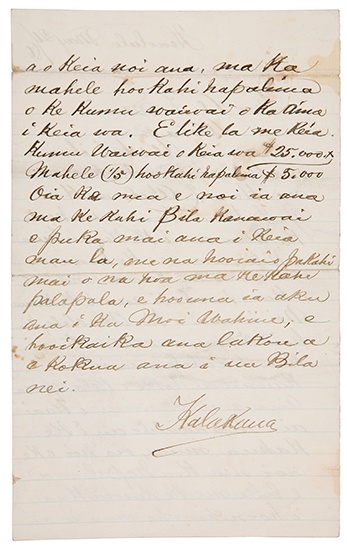 a o keia noi ana, ma ka
mahele hookahi hapalima
o ke kumu waiwai o ka aina
i keia wa. E like la me keia.
Kumu Waiwai o keia wa $25.000
Mahele (1/5) hookahi hapalima $5.000
Oia ka mea e noi ia ana
ma ke kahi Bila Kanawai
e puka mai ana i keia
mau la, me na hooiaio pu kahi
mai o na hoa ma ke kahi
palapala, e hoouna ia aku
ana i ka Moi Wahine, e
hooikaika ana lakou a
e kokua ana i ua Bila
nei.
Kalakaua